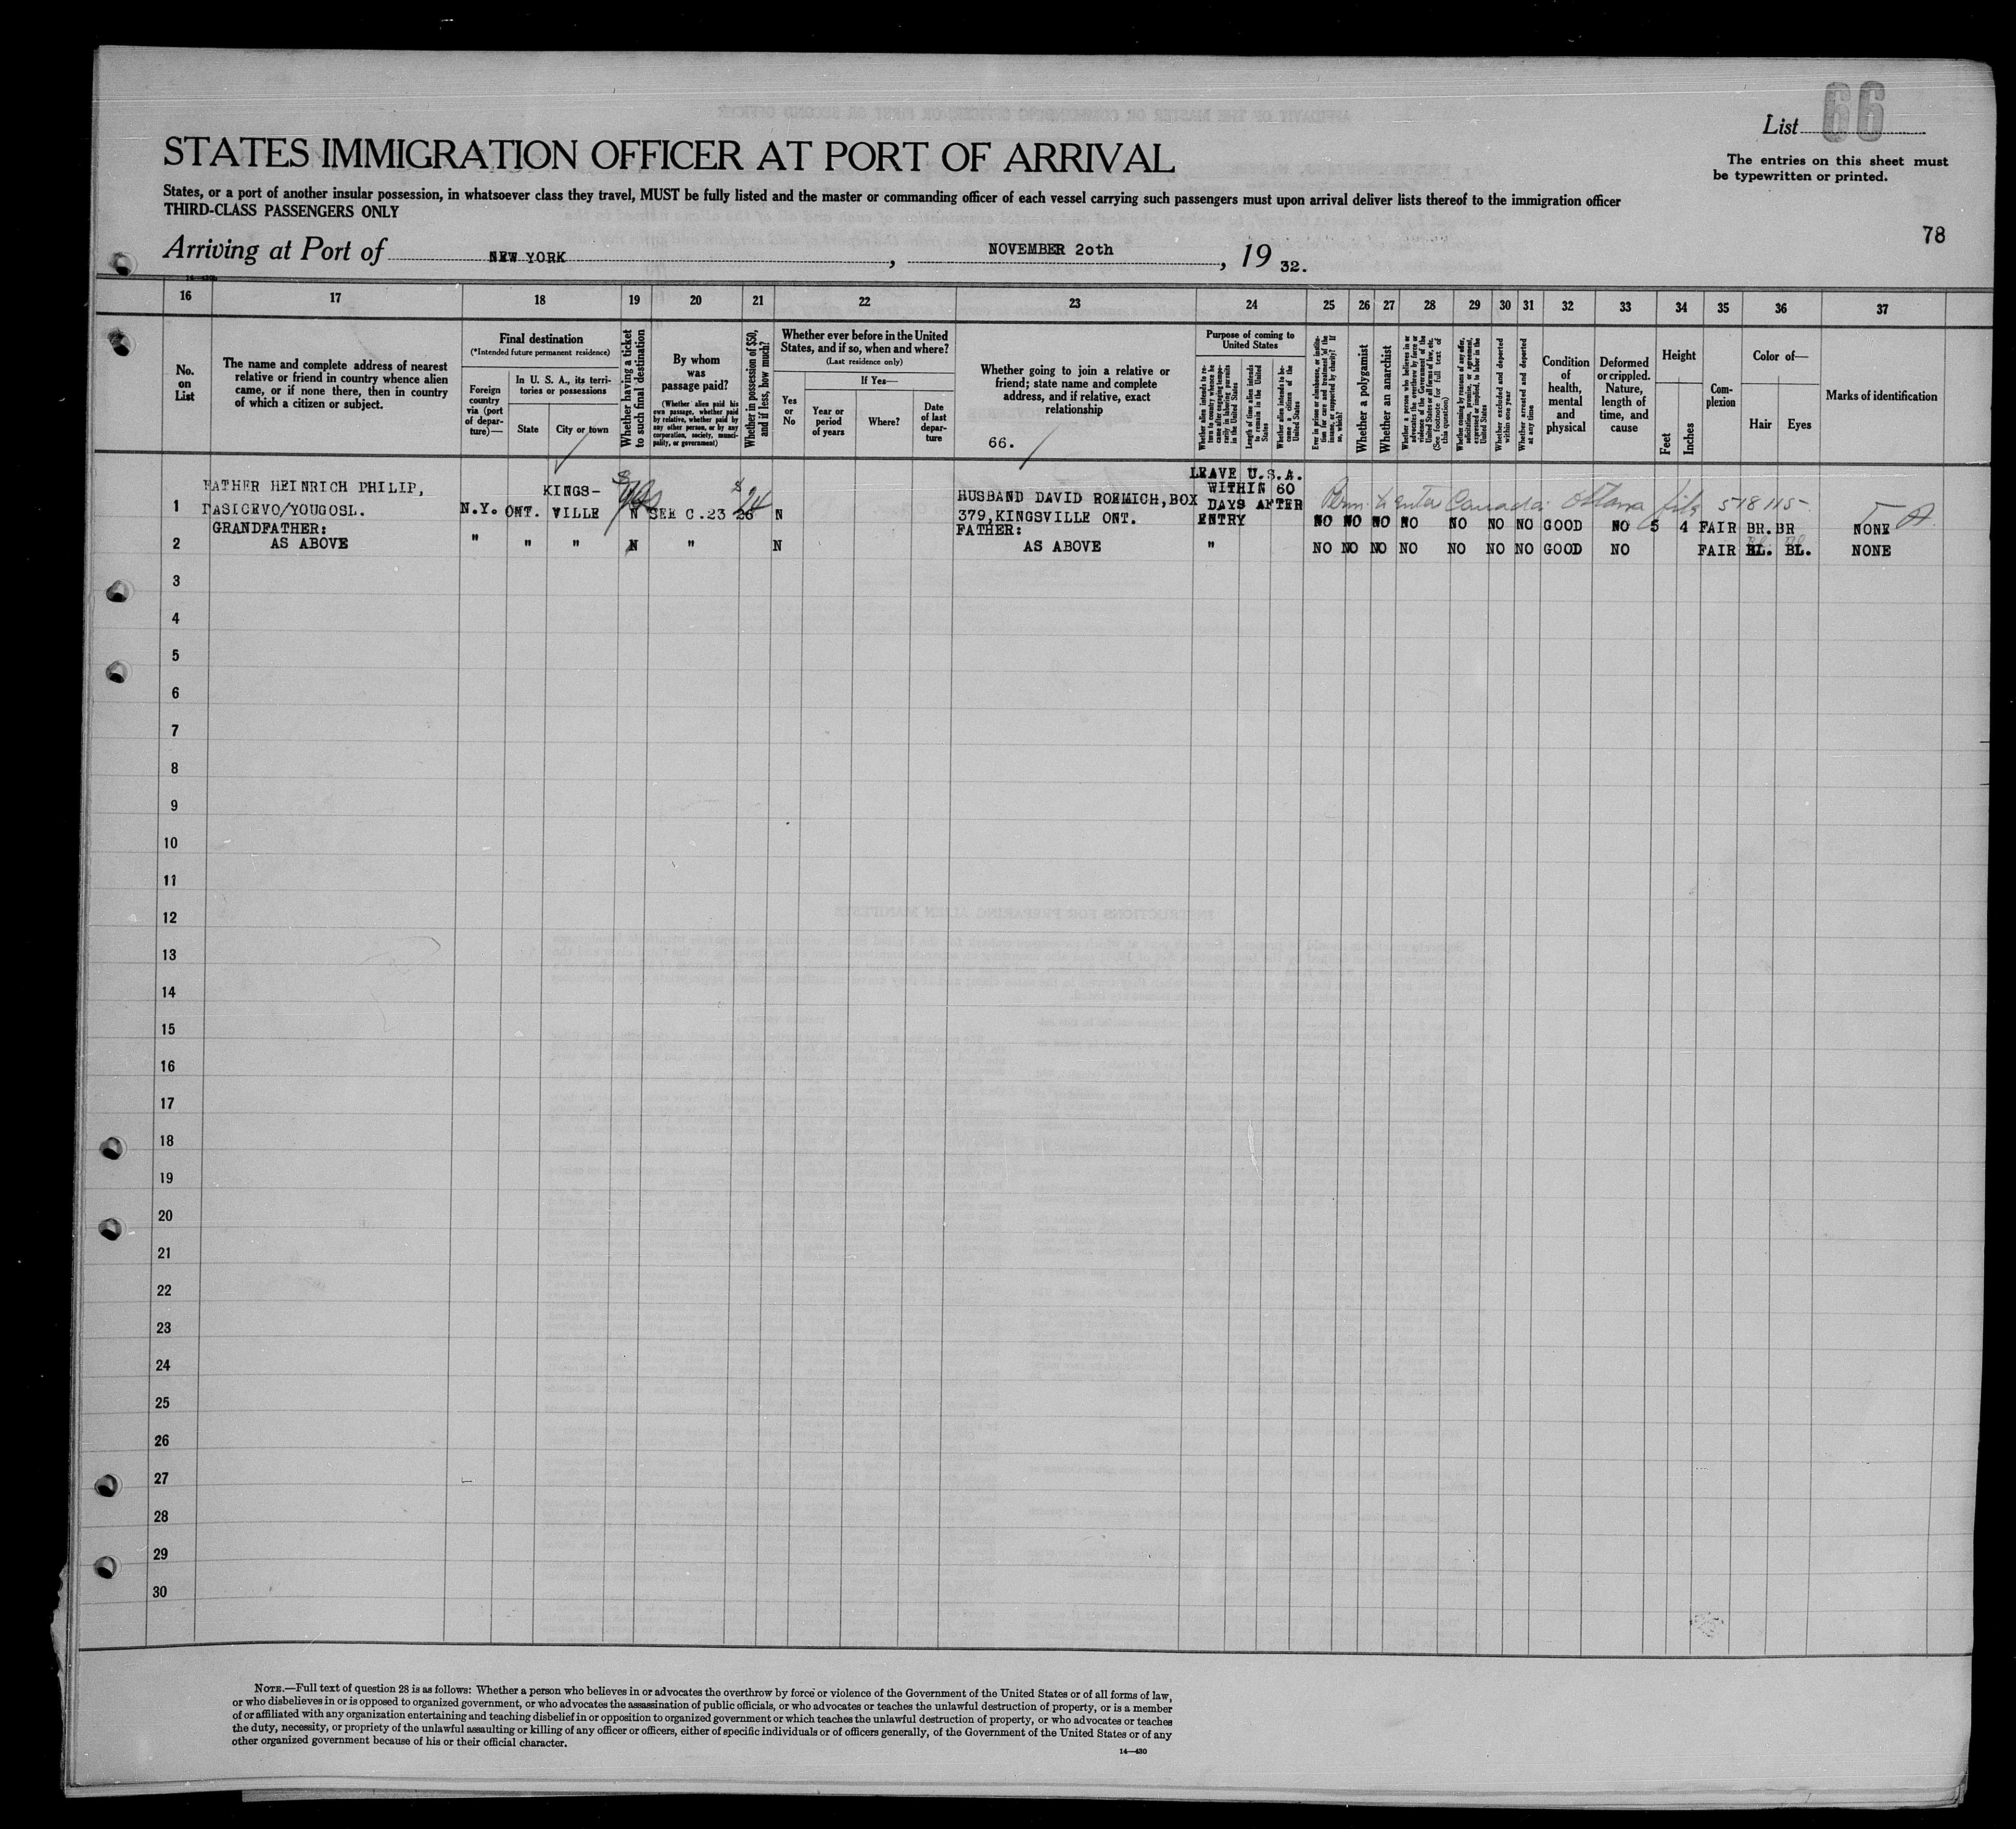 List 66
STATES IMMIGRATION OFFICER AT PORT OF ARRIVAL
The entries on this sheet must
be typewritten or printed.
States, or a port of another insular possession, in whatsoever class they travel, MUST be fully listed and the master or commanding officer of each vessel carrying such passengers must upon arrival deliver lists thereof to the immigration officer
THIRD-CLASS PASSENGERS ONLY
78
Arriving at Port of NEW YORK, NOVEMBER 2oth, 19 32.
16 17 18 19 20 21 22 23 24 25 26 27 28 29 30 31 32 33 34 35 36 37
No.
on
List
The name and complete address of nearest
relative or friend in country whence alien
came, or if none there, then in country
of which a citizen or subject.
Final destination
(*Intended future permanent residence)
Foreign
country
via (port
of depar-
ture)—
In U. S. A., its terri-
tories or possessions
State
City or town
Whether having a ticket
to such final destination
By whom
was
passage paid?
(Whether alien paid his
own passage, whether paid
by relative, whether paid by
any other person, or by any
corporation, society, munici-
pality, or government)
Whether in possession of $50,
and if less, how much?
Whether ever before in the United
States, and if so, when and where?
(Last residence only)
Yes
or
No
If Yes—
Year or
period
of years
Where?
Date
of last
depar-
ture
Whether going to join a relative or
friend; state name and complete
address, and if relative, exact
relationship
66.
Purpose of coming to
United States
Whether alien intends to re-
turn to country whence he
came after engaging tempo-
rarily in laboring pursuits
in the United States
Length of time alien intends
to remain in the United
States
Whether alien intends to be-
come a citizen of the
United States
Ever in prison or almshouse, or institu-
tion for care and treatment of the
insane, or supported by charity? If
so, which?
Whether a polygamist
Whether an anarchist
Whether a person who believes in or
advocates the overthrow by force or
violence of the Government of the
United States or all forms of law, etc.
(See footnote for full text of
this question)
Whether coming by reasons of any offer,
solicitation, promise, or agreement,
expressed or implied, to labor in the
United States
Whether excluded and deported
within one year
Whether arrested and deported
at any time
Condition
of
health,
mental
and
physical
Deformed
or crippled.
Nature,
length of
time, and
cause
Height
Feet
Inches
Com-
plexion
Color of—
Hair
Eyes
Marks of identification
1
FATHER HEINRICH PHILIP,
PASICEVO/YOUGOSL.
N.Y. ONT.
KINGS-
VILLE
yes
N SEE C.23
$ 24
26 N
HUSBAND DAVID ROEMICH,BOX
379,KINGSVILLE ONT.
LEAVE U.S.A.
WITHIN 60
DAYS AFTER
ENTRY
Canada Ottawa file 518115
NO NO NO NO NO NO NO GOOD NO 5 4 FAIR BR. BR NONE
2
GRANDFATHER:
AS ABOVE
" " " N " N
FATHER:
AS ABOVE
"
NO NO NO NO NO NO NO GOOD NO FAIR BL. BL. NONE
3
4
5
6
7
8
9
10
11
12
13
14
15
16
17
18
19
20
21
22
23
24
25
26
27
28
29
30
NOTE.—Full text of question 28 is as follows: Whether a person who believes in or advocates the overthrow by force or violence of the Government of the United States or of all forms of law,
or who disbelieves in or is opposed to organized government, or who advocates the assassination of public officials, or who advocates or teaches the unlawful destruction of property, or is a member
of or affiliated with any organization entertaining and teaching disbelief in or opposition to organized government or which teaches the unlawful destruction of property, or who advocates or teaches
the duty, necessity, or propriety of the unlawful assaulting or killing of any officer or officers, either of specific individuals or of officers generally, of the Government of the United States or of any
other organized government because of his or their official character.
14—430